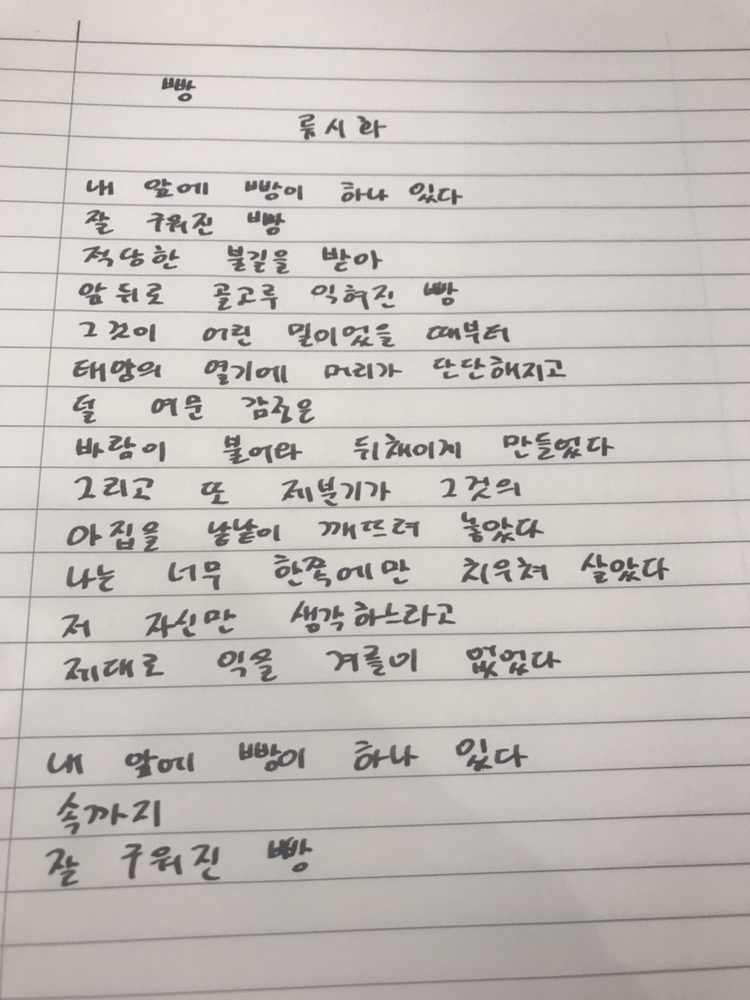 빵
류시화
내 앞에 빵이 하나 있다
잘 구워진 빵
적당한 불길을 받아
앞뒤로 골고루 익혀진 빵
그것이 어린 밀이었을 때부터
태양의 열기에 머리가 단단해지고
덜 여문 감정은
바람이 불어와 뒤채이게 만들었다
그리고 또 제분기가 그것의
아집을 낱낱이 깨뜨려 놓았다
나는 너무 한쪽에만 치우쳐 살았다
저 자신만 생각하느라고
제대로 익을 겨를이 없었다
내 앞에 빵이 하나 있다
속까지
잘 구워진 빵